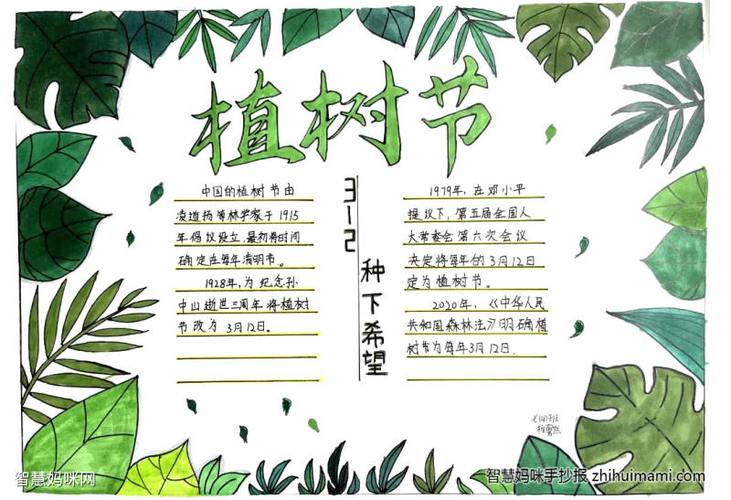 植树节
中国的植树节由
凌道扬等林学家于1915
年倡议设立,最初将时间
确定在每年清明节。
1928年,为纪念孙
中山逝世三周年,将植树
节改为 3月12日。
3-12
种下希望
1979年,在邓小平
提议下,第五届全国人
大常委会第六次会议
决定将每年的3月12日
定为植树节。
2020年,《中华人民
共和国森林法》明确植
树节为每年3月12日.
智慧妈咪网
智慧妈咪手抄报 zhihuimami.com